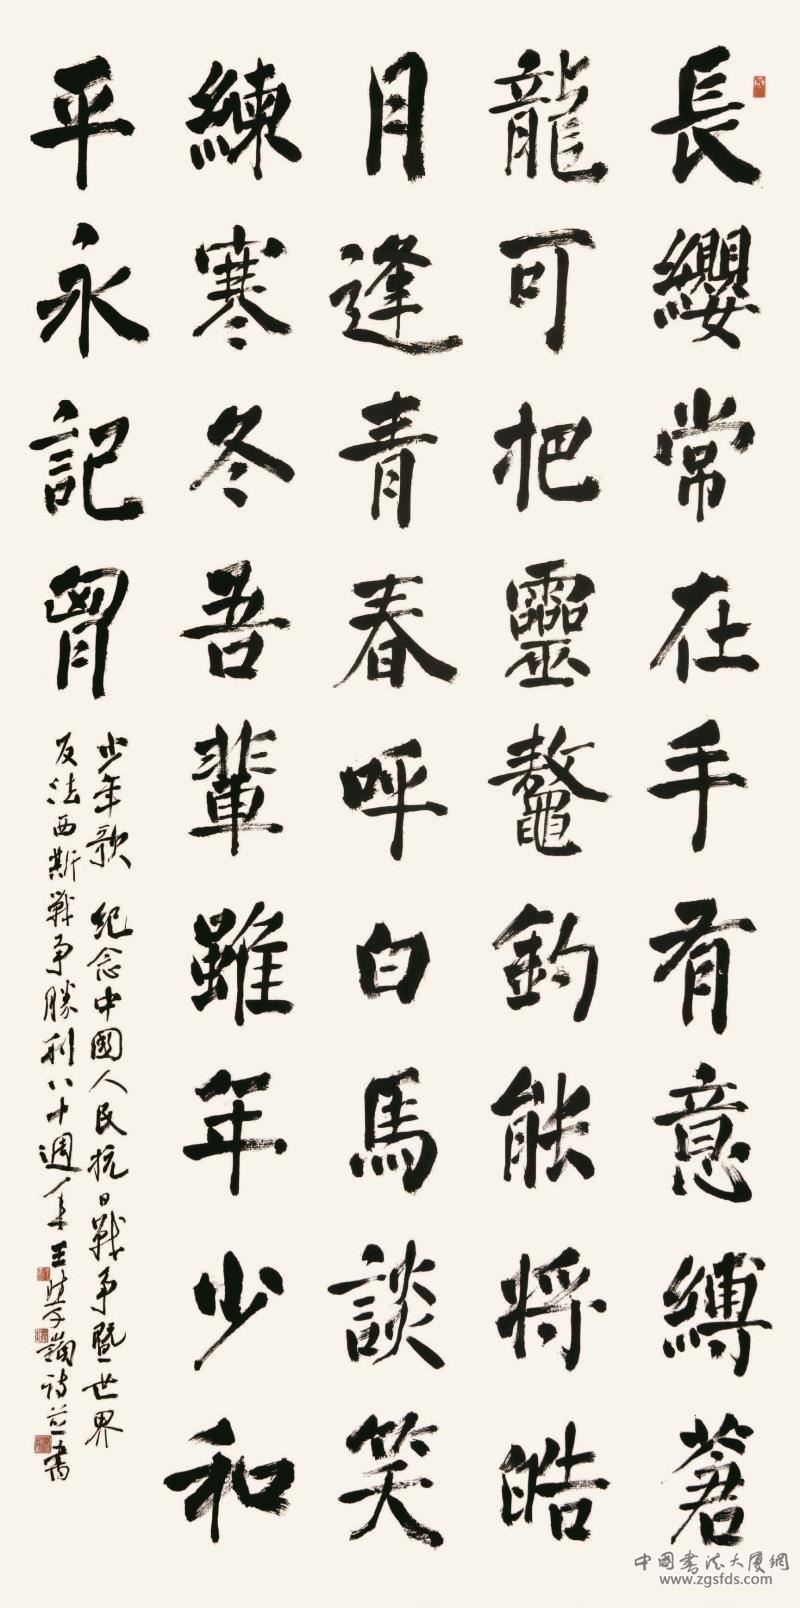 長纓常在手有意縛蒼
龍可把靈鼇釣能將皓
月逢青春呼白馬談笑
練寒冬吾輩雖年少和
平永記胷
少年歌 紀念中國人民抗日戰争暨世界
反法西斯戰争勝利八十週年 王學嶺詩并書
中国书法大厦網
www.zgsfds.com